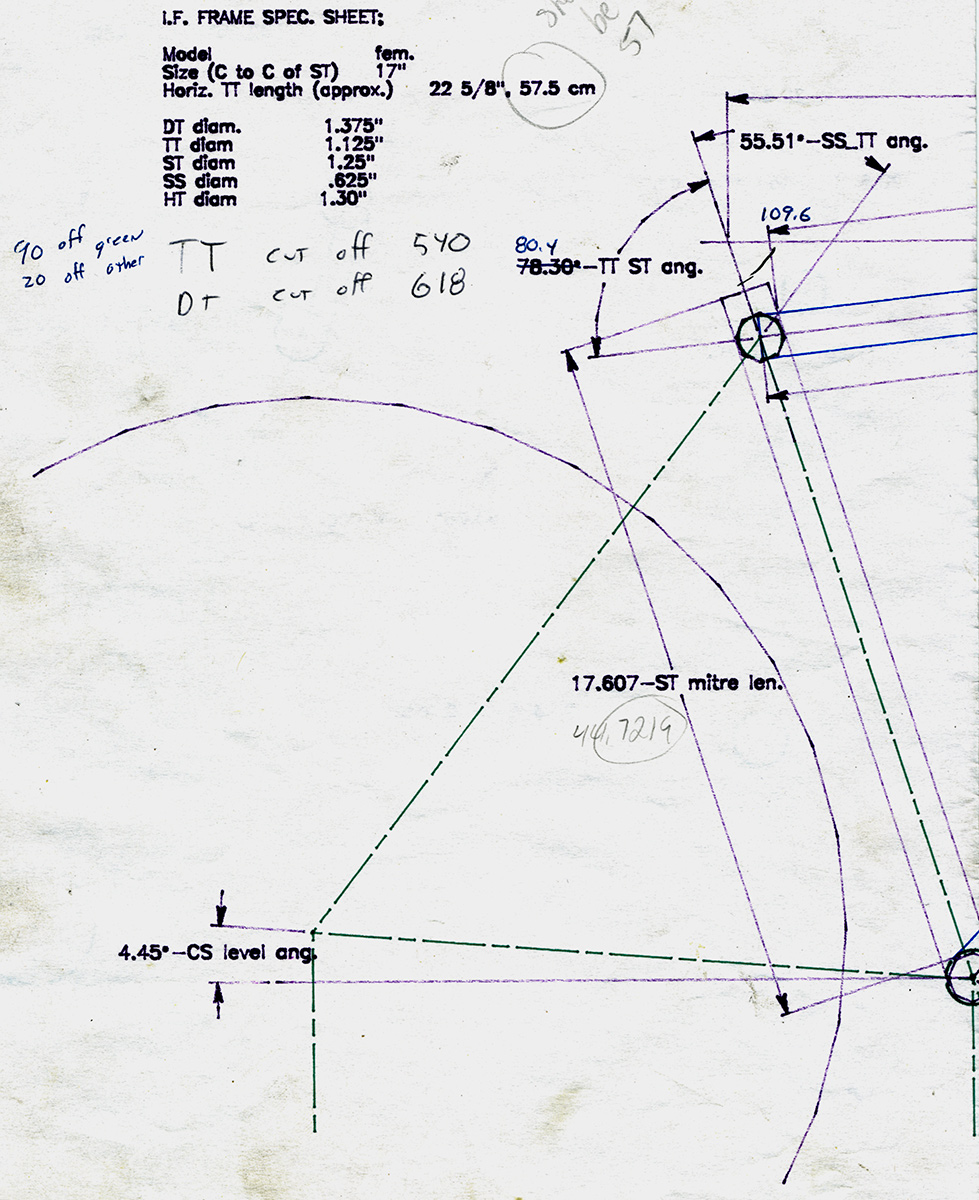 I.F. FRAME SPEC. SHEET;
be
57
Model fem.
Size (C to C of ST) 17"
Horiz. TT length (approx.) 22 5/8", 57.5 cm
DT diam. 1.375"
TT diam 1.125"
ST diam 1.25"
SS diam .625"
HT diam 1.30"
55.51°-SS_TT ang.
109.6
90 off green
20 off other
TT cut off 540
DT cut off 618
80.4
78.30°-TT ST ang.
17.607-ST mitre len.
44.7219
4.45°-CS level ang.